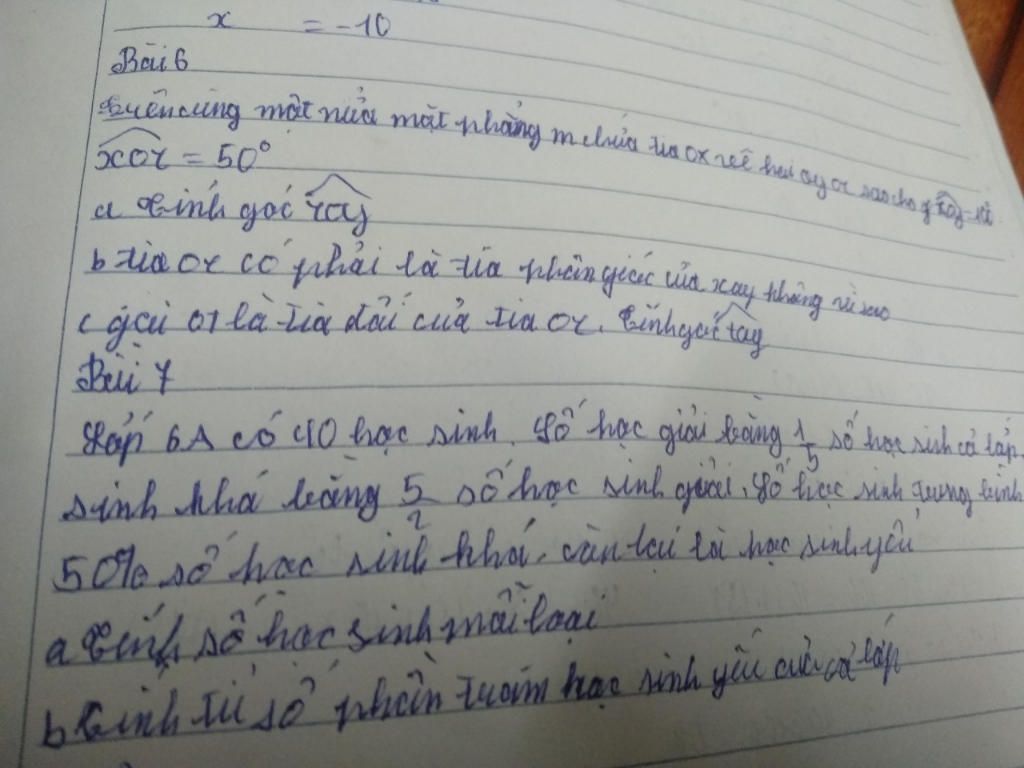 x = -10
Bài 6
trên cùng một nửa mặt phẳng chứa tia ox vẽ hai oy or sao cho xoy = 100
xor = 50°
a tính góc roy
b tia or có phải là tia phân giác của xoy không vì sao
c gọi ot là tia đối của tia or. tính góc toy
Bài 7
Lớp 6A có 40 học sinh. Số học giỏi bằng 1/5 số học sinh cả lớp.
sinh khá bằng 5/2 số học sinh giỏi. Số học sinh trung bình
50% số học sinh khá. còn lại là học sinh yếu
a tính số học sinh mỗi loại
b tính tỉ số phần trăm học sinh yếu của cả lớp